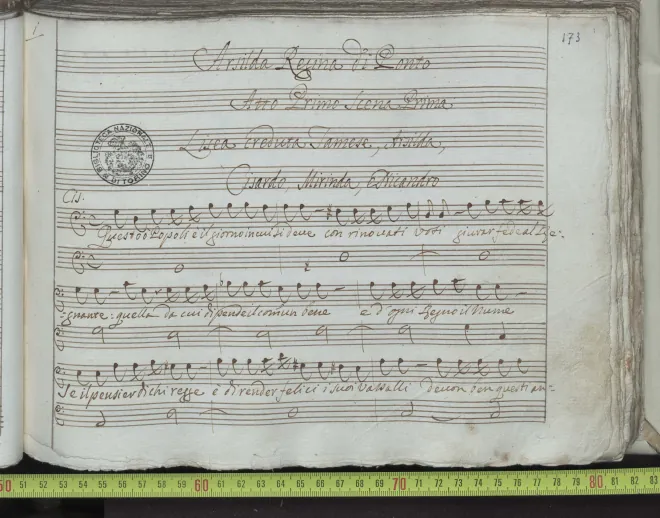 1
173
Arsilda Regina di Ponto
Atto Primo Scena Prima
Lisea creduta Tamese, Arsilda,
Cisardo, Mirinda, e Nicandro
BIBLIOTECA NAZIONALE DI TORINO
Cis.
Questo ò Popoli è il giorno in cui si deve con rinovati voti giurar fede al Re-
-gnante: quella da cui dipende il comun bene e d'ogni Regno il Nume
Se il pensier di chi regge è di render felici i suoi Vassalli devon ben questi an-
50 51 52 53 54 55 56 57 58 59 60 61 62 63 64 65 66 67 68 69 70 71 72 73 74 75 76 77 78 79 80 81 82 83